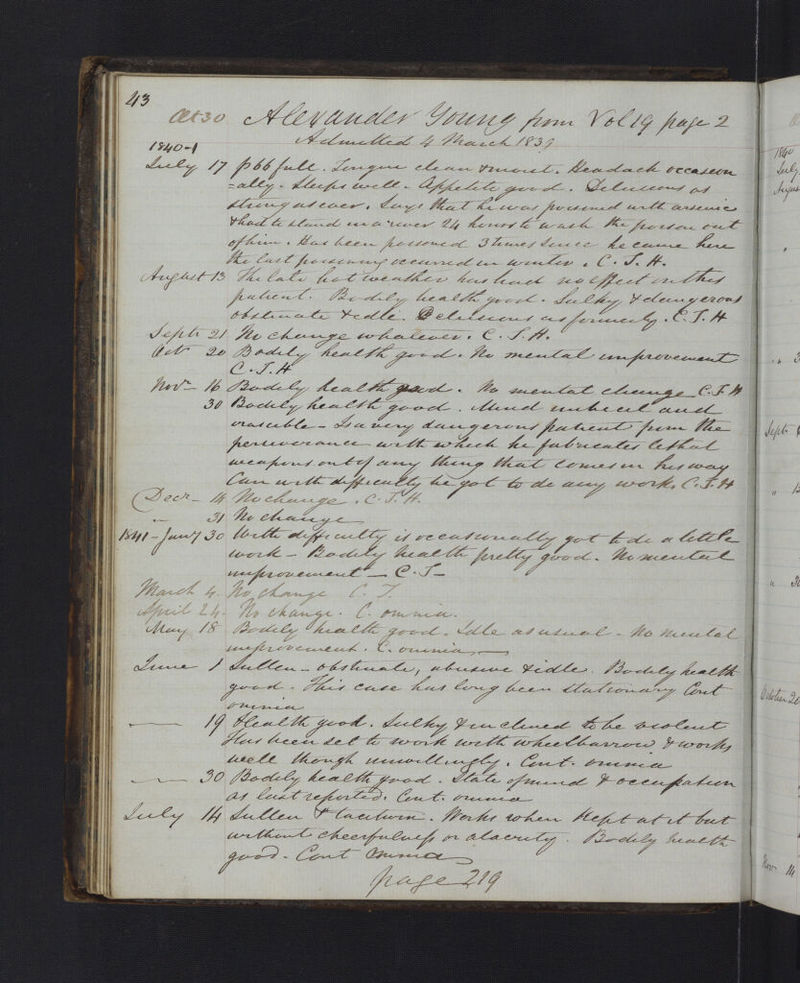 43
Æt 30 Alexander Young from Vol 19 page 2
Admitted 4 March 1839
1840-1
July 17 P 66 full. Tongue clean & moist. Headach occasion
=ally. Sleeps well. Appetite good. Delusions as
strong as ever. Says that he was poisoned with arsenic
& had to stand in a river 24 hours to wash the poison out
of him. Has been poisoned 3 times since he came here
the last poisoning occurred in winter. C. T. H.
August 13 The late hot weather has had no effect on this
patient. Bodily health good. Sulky & dangerous
obstinate & idle. Delusions as formerly. C. T. H
Septr 21 No change whatever. C. T. H.
Octr 20 Bodily health good. No mental improvement
C. T. H
Novr 16 Bodily health good. No mental change C. T. H
30 Bodily health good. Mind imbecile and
irascible - Is a very dangerous patient from the
perseverance with which he fabricates lethal
weapons out of any thing that comes in his way
Can with difficulty be got to do any work. C. T. H
Decr - 14 No change. C. T. H.
" 31 No change
1841 - Jany 30 With difficulty is occasionally got to do a little
work - Bodily health pretty good. No mental
improvement - C. T -
March 4. No change C. T.
April 24. No change. C. omnia.
May 18 Bodily health good. Idle as usual. No mental
improvement. C. omnia
June 1 Sullen - obstinate, abusive & idle. Bodily health
good. This case has long been stationary Cont
omnia
— 19 Health good. Sulky & inclined to be violent
Has been set to work with wheelbarrow & works
well though unwillingly. Cont. omnia
— 30 Bodily health good. State of mind & occupation
as last reported. Cont. omnia
July 14 Sullen & taciturn. Works when kept at it but
without cheerfulness or alacrity. Bodily health
good. Cont omnia
page 219
1840
July
August
Septr
October 20
Novr 14